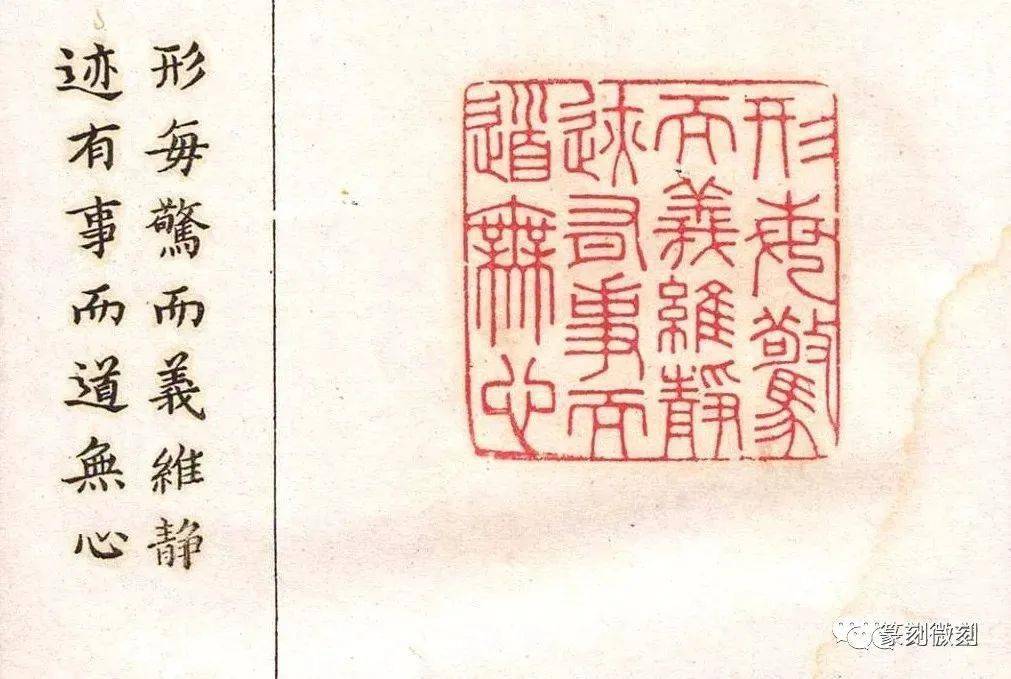 形每驚而義維静
迹有事而道無心
形每驚
而義維靜
迹有事而
道無心
篆刻微刻